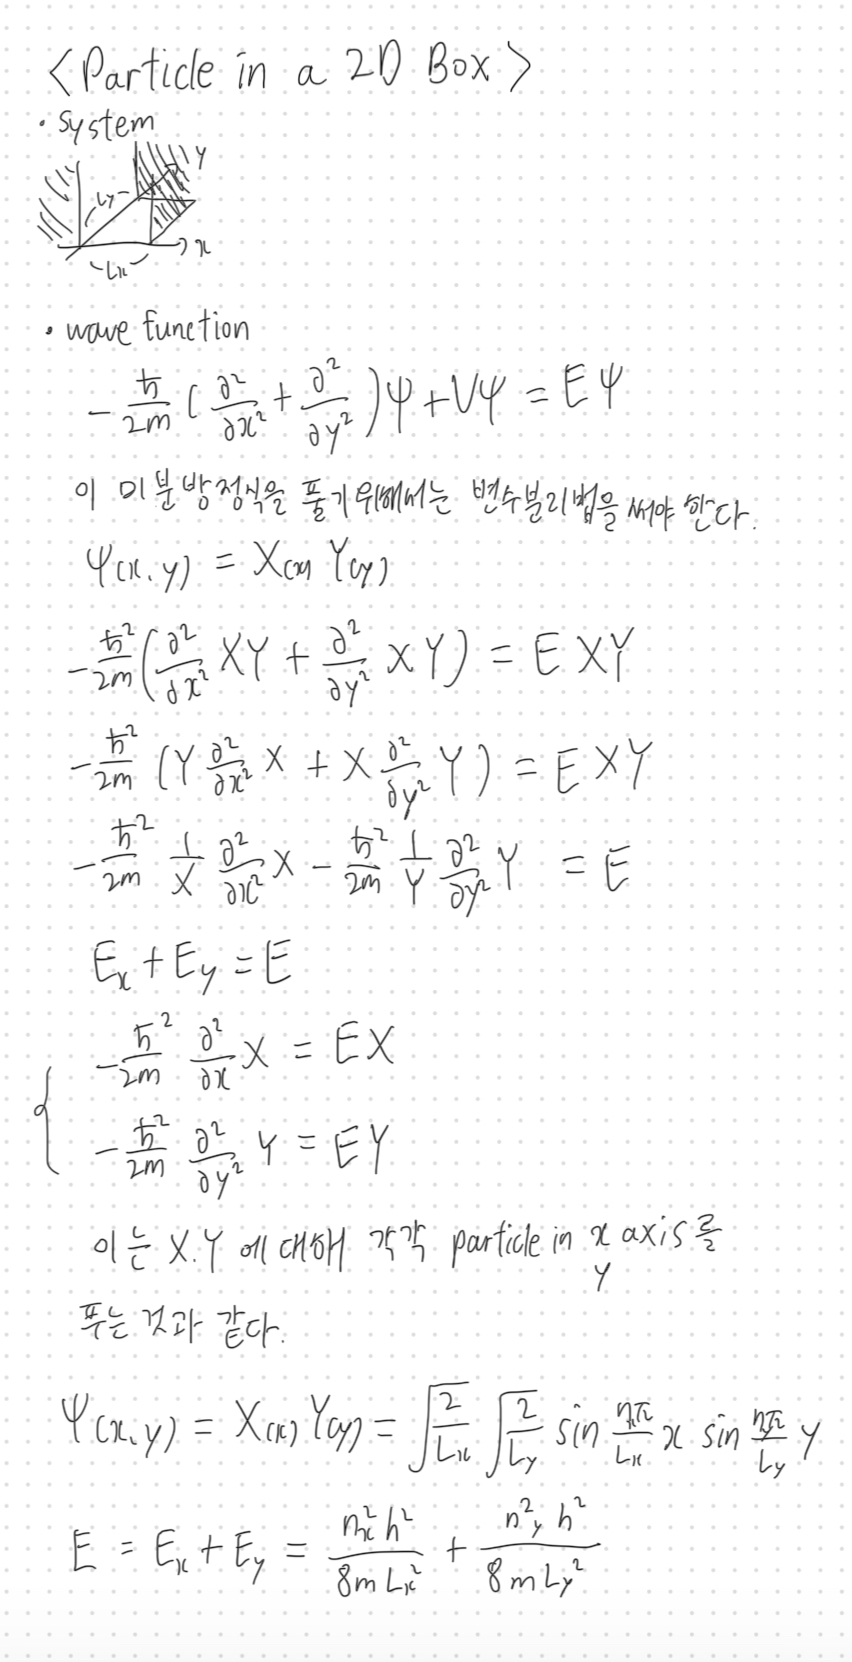 <Particle in a 2D Box>
· System
y
Ly
x
Lx
· wave function
-ℏ/2m (∂²/∂x² + ∂²/∂y²)ψ + Vψ = Eψ
이 미분방정식을 풀기위해서는 변수분리법을 써야 한다.
ψ(x,y) = X(x) Y(y)
-ℏ²/2m (∂²/∂x² XY + ∂²/∂y² XY) = E XY
-ℏ²/2m (Y ∂²/∂x² X + X ∂²/∂y² Y) = E XY
-ℏ²/2m 1/X ∂²/∂x² X - ℏ²/2m 1/Y ∂²/∂y² Y = E
Ex + Ey = E
{ -ℏ²/2m ∂²/∂x X = EX
-ℏ²/2m ∂²/∂y² Y = EY
이는 X.Y 에 대해 각각 particle in x axis를
y
푸는 것과 같다.
ψ(x,y) = X(x) Y(y) = √(2/Lx) √(2/Ly) sin nxπ/Lx x sin nyπ/Ly y
E = Ex + Ey = nx²h²/8mLx² + n²y h²/8mLy²